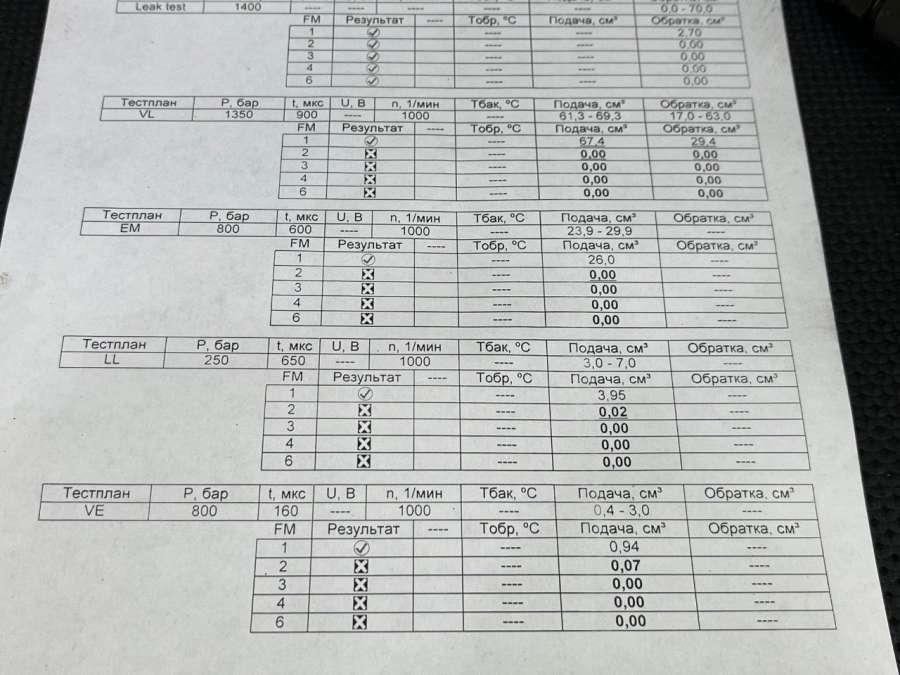 Leak test 1400 ---- ---- ---- ---- ---- 0,0 - 70,0
FM Результат ---- Тобр, ºC Подача, см³ Обратка, см³
1 ---- ---- 2,70
2 ---- ---- 0,00
3 ---- ---- 0,00
4 ---- ---- 0,00
6 ---- ---- 0,00
Тестплан P, бар t, мкс U, B n, 1/мин Тбак, ºC Подача, см³ Обратка, см³
VL 1350 900 ---- 1000 ---- 61,3 - 69,3 17,0 - 63,0
FM Результат ---- Тобр, ºC Подача, см³ Обратка, см³
1 ---- 67,4 29,4
2 ---- 0,00 0,00
3 ---- 0,00 0,00
4 ---- 0,00 0,00
6 ---- 0,00 0,00
Тестплан P, бар t, мкс U, B n, 1/мин Тбак, ºC Подача, см³ Обратка, см³
EM 800 600 ---- 1000 ---- 23,9 - 29,9 ----
FM Результат ---- Тобр, ºC Подача, см³ Обратка, см³
1 ---- 26,0 ----
2 ---- 0,00 ----
3 ---- 0,00 ----
4 ---- 0,00 ----
6 ---- 0,00 ----
Тестплан P, бар t, мкс U, B n, 1/мин Тбак, ºC Подача, см³ Обратка, см³
LL 250 650 ---- 1000 ---- 3,0 - 7,0 ----
FM Результат ---- Тобр, ºC Подача, см³ Обратка, см³
1 ---- 3,95 ----
2 ---- 0,02 ----
3 ---- 0,00 ----
4 ---- 0,00 ----
6 ---- 0,00 ----
Тестплан P, бар t, мкс U, B n, 1/мин Тбак, ºC Подача, см³ Обратка, см³
VE 800 160 ---- 1000 ---- 0,4 - 3,0 ----
FM Результат ---- Тобр, ºC Подача, см³ Обратка, см³
1 ---- 0,94 ----
2 ---- 0,07 ----
3 ---- 0,00 ----
4 ---- 0,00 ----
6 ---- 0,00 ----